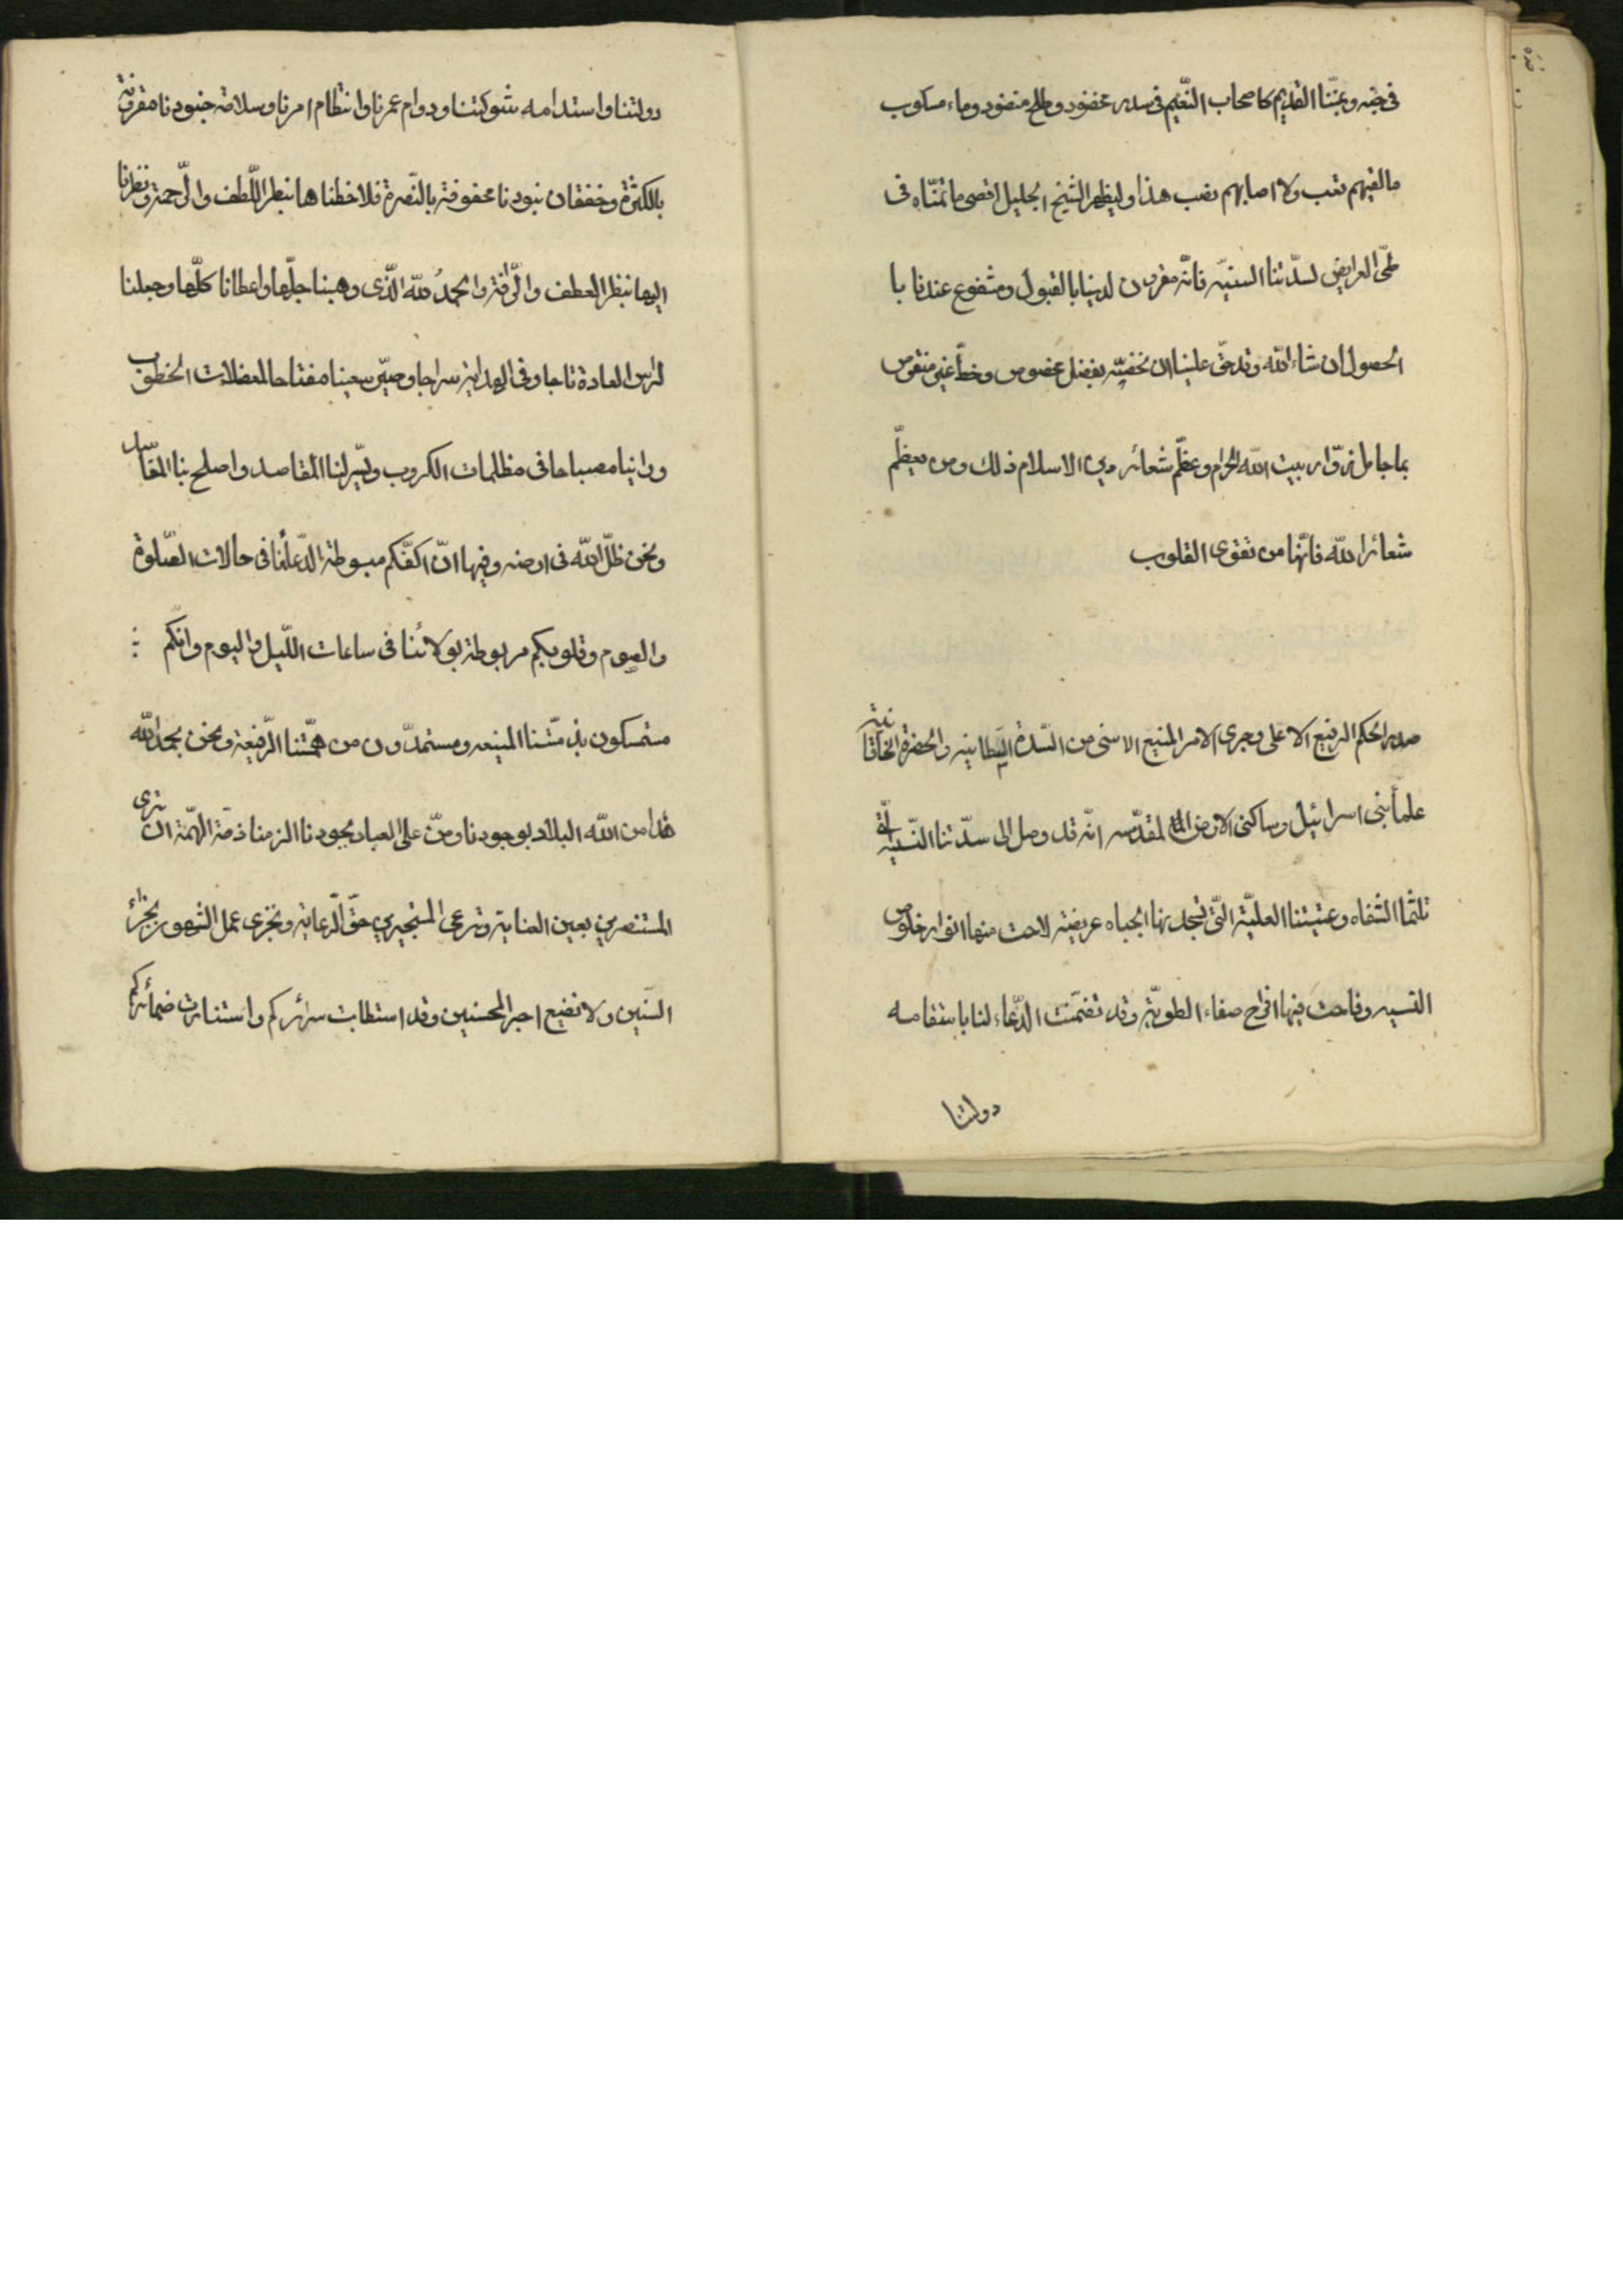 فى جنبه وعيننا القديم كاصحاب النعيم فى سدر مخضود وطلح منضود وماء مسكوب
ما لقيهم تعب ولا اصابهم نصب هذا وليظهر الشيخ الجليل اقصى ما تمنّاه فى
طىّ العرايض لسدّتنا السنيّه فانّه مقرون لدينا بالقبول ومشفوع عندنا با
الحصول ان شاء الله وقد حقّ علينا ان نخصّه بفضل مخصوص وحظّ غير منقوص
بما جامل زوّار بيت الله الحرام وعظّم شعائر دين الاسلام ذلك ومن يعظّم
شعائر الله فانّها من تقوى القلوب
صدر الحكم الرفيع الاعلى وجرى الامر المنيع الاسنى من السّدة السلطانيه والحضرة الخاقانية
علمأ بنى اسرائيل وساكنى الارض المقدّسه انّه قد وصل الى سدّتنا السّنيّه الّتى
تلثمها الشفاه وعتبتنا العليّة الّتى تسجد بها الجباه عريضة لاحت منها انوار خلوص
النسيه وفاحت فيها افواح صفاء الطويّة وقد تضمّنت الدّعاء لنا باستقامه
دولتنا
دولتنا واستدامه شوكتنا ودوام عمرنا وانتظام امرنا وسلامة جنودنا مقرونة
بالكثرة وخفقان بنودنا محفوفة بالنّصرة فلاحظناها بنظر اللّطف والرّحمة ونظرنا
اليها بنظر العطف والرّافة والحمدُ للّه الّذى وهبنا جلّها واعطانا كلّها وجعلنا
لراس العادة تاجا وفى الهداية سراجا وصيّر سعينا مفتاحا لمعضلات الخطوب
وراينا مصباحا فى مظلمات الكروب ويسّر لنا المقاصد واصلح بنا المفاسد
ونحن ظلّ اللّه فى ارضه وفيها انّ اكفّكم مبسوطة لدعائنا فى حالات الصّلوة
والصوم وقلوبكم مربوطة بولائنا فى ساعات اللّيل واليوم وانّكم
متمسكون بذمّتنا المنيعه ومستمدّون من همّتنا الرّفيعة ونحن بحمد اللّه
قد امن اللّه البلاد بوجودنا ومنّ على العباد بجودنا الزمنا ذمّة الهمّة ان نرى
المستنصرين بعين العناية ونرعى المستجيرين حقّ الرّعاية ونجزى عمل الشهور بجزاء
السّنين ولا نضيع اجر المحسنين وقد استطابت سرائركم واستنارت ضمائركم